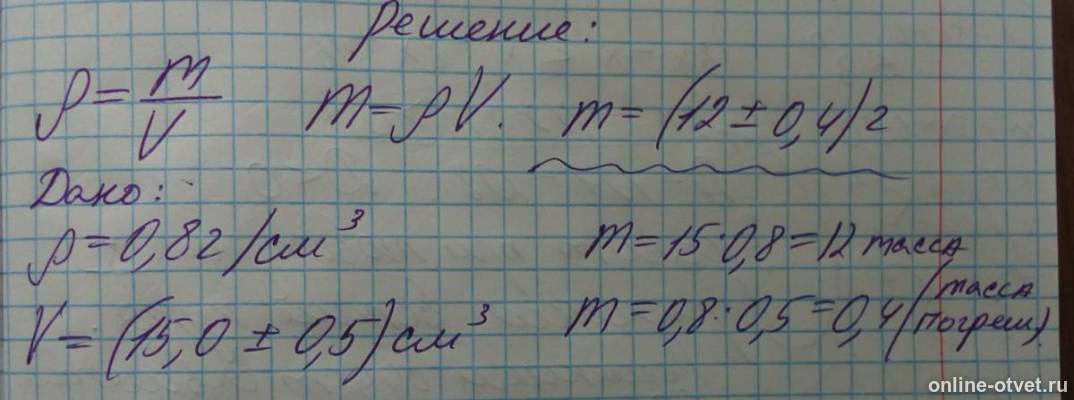 Решение:
ρ = m/V m = ρV. m = (12 ± 0,4) г
Дано:
ρ = 0,8 г/см³
m = 15·0,8 = 12 масса
V = (15,0 ± 0,5) см³
m = 0,8·0,5 = 0,4 (масса погреш.)
online-otvet.ru